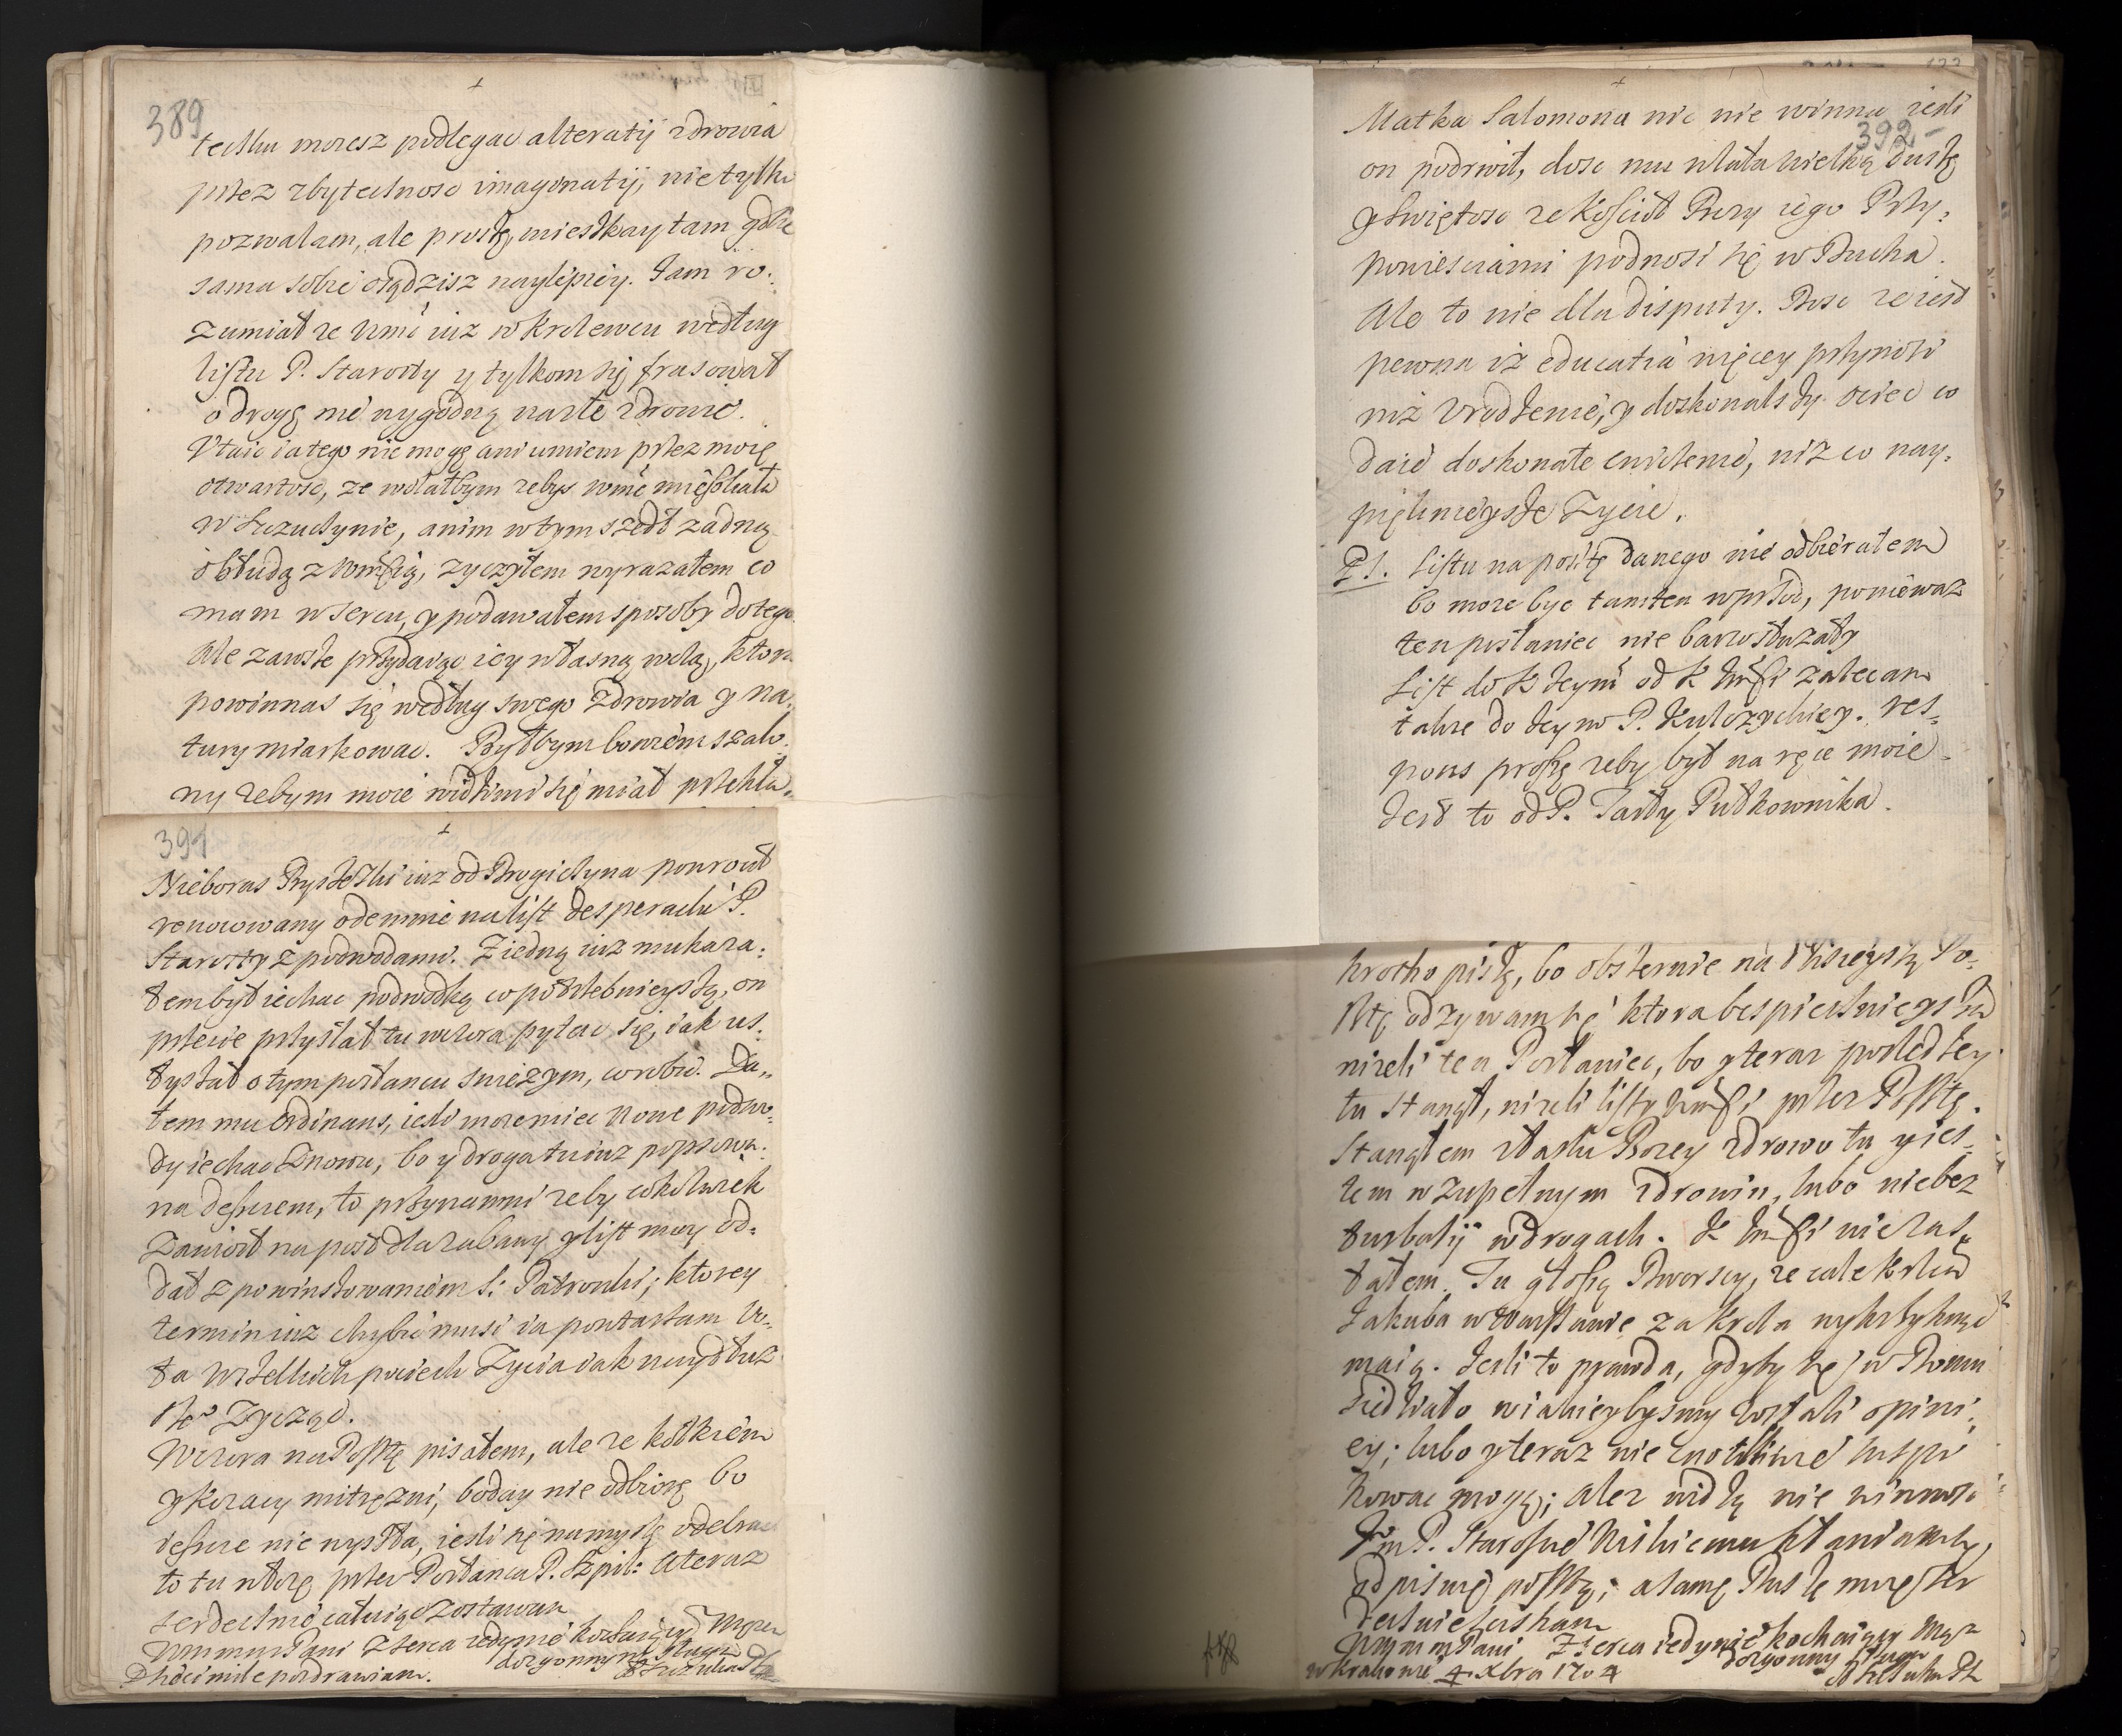 389
techu mozesz podlegac alteratij zdrowia
przez zbytecznosc imaginatij, nie tylko
pozwalam, ale proszę, mieszkay tam gdzie
sama sobie osądzisz naylepiey. Jam ro:
zumiał ze Wmć iuz w Krolewcu według
listu P. Starosty y tylkom się frasował
o drogę nie wygodną na złe zdrowie.
Utaic ia tego nie mogę ani umiem przez moię
otwartosc, ze wolałbym zebys Wmć mieszkała
w Szczuczynie, anim w tym szedł zadną
obłudą z Wmścią, zyczyłem wyrazałem co
mam w sercu, y podawałem sposoby do tego
Ale zawsze przydaiąc iey własną wolą, ktora
powinnas się według swego zdrowia y na,
tury miarkowac. Byłbym bowiem szalo:
ny zebym moie widzimi się miał przekła,
391
Nieboras Pryszezki iuz od Drogiczyna powrocił
renowowany odemnie na list desperacki P.
Starosty z podwodami. Z iedną iuz mu kaza:
łem był iechac podwodką co potrzebnieyszą, on
przecie przysłał tu wczora pytac się, iak us:
łyszał o tym posłancu swieżym, co robic. Da,,
łem mu Ordinans, iesli moze miec Nowe podwo,
dy iechac Znowu, bo y droga tu iuz poprawio:
na deszczem, to przynamni zeby cokolwiek
Zawiozł na post dla zabawy y list moy od,
dał z powinszowaniem S: Patronki; ktorey
termin iuz chybic musi ia powtarzam
ta wszelkich pociech Zycia iak naydłuz
szeo Zycząc.
Wczora na Posztę pisałem, ale ze
y Kozacy mitręzni,boday nie odbiorę bo
ieszcze nie wyszła, iesli się namyslę odebrac
to tu włozę przez Posłanca P. Szpil: A teraz
serdecznie całuiąc zostawam
Wmm mPani Z serca iedynie kochaiący Mązem
dozgonnym y Sługą
Dzieci mile pozdrawiam.
392
Matka Salomona nic nie winna iesli
on podrwił, dosc mu wlała wielką duszę
y Swiętosc ze Kosciół Bozy iego Przy,
powiesciami podnosi się w Ducha.
Ale to nie dla disputy. Dosc ze iest
pewna iz educatia więcey przynosi
niz Urodzenie, y doskonalszy ociec co
daie doskonałe cwiczenie, niz co nay,
pięknieysze Zycie.
PS. Listu na posztę danego nie odbierałem
bo moze byc tamten wprzod, poniewaz
ten posłaniec nie barzo służały
List do zalecam
takze do P. Kulczyckiey. res,
pons proszę zeby był na ręce moie.
Jest to od P. Tarły Pułkownika.
krotko piszę, bo obszernie na dzisieyszą Po,
sztę odzywam się ktora bespiecznieysza
nizeli ten Posłaniec, bo y teraz posledzey
tu stanął, nizeli listy Wmści przez Posztę.
Stanąłem z łaski Bozey zdrowo tu y ies,
tem w zupełnym zdrowiu, lubo nie bez
turbatij w drogach. Wmści nie zas,
tałem. Tu głoszą Dworscy, ze
Jakuba w Warszawie za Krola wykrzyknąc
maią. Jesli to prawda, gdyby się w Domu
siedziało w iakieybysmy zostali opini,
ey; lubo y teraz nie cnotliwie suspi
kowac mogą; Alez widzą nie winnosc
Jm P. Staroscie kłaniam się,
odpisuię posztą; a samę Duszę moię ser
decznie sciskam
Wmm mPani Z serca iedynie kochaiący Mąz
dozgonny y Sługa
w Krakowie 4 Xbra 1704